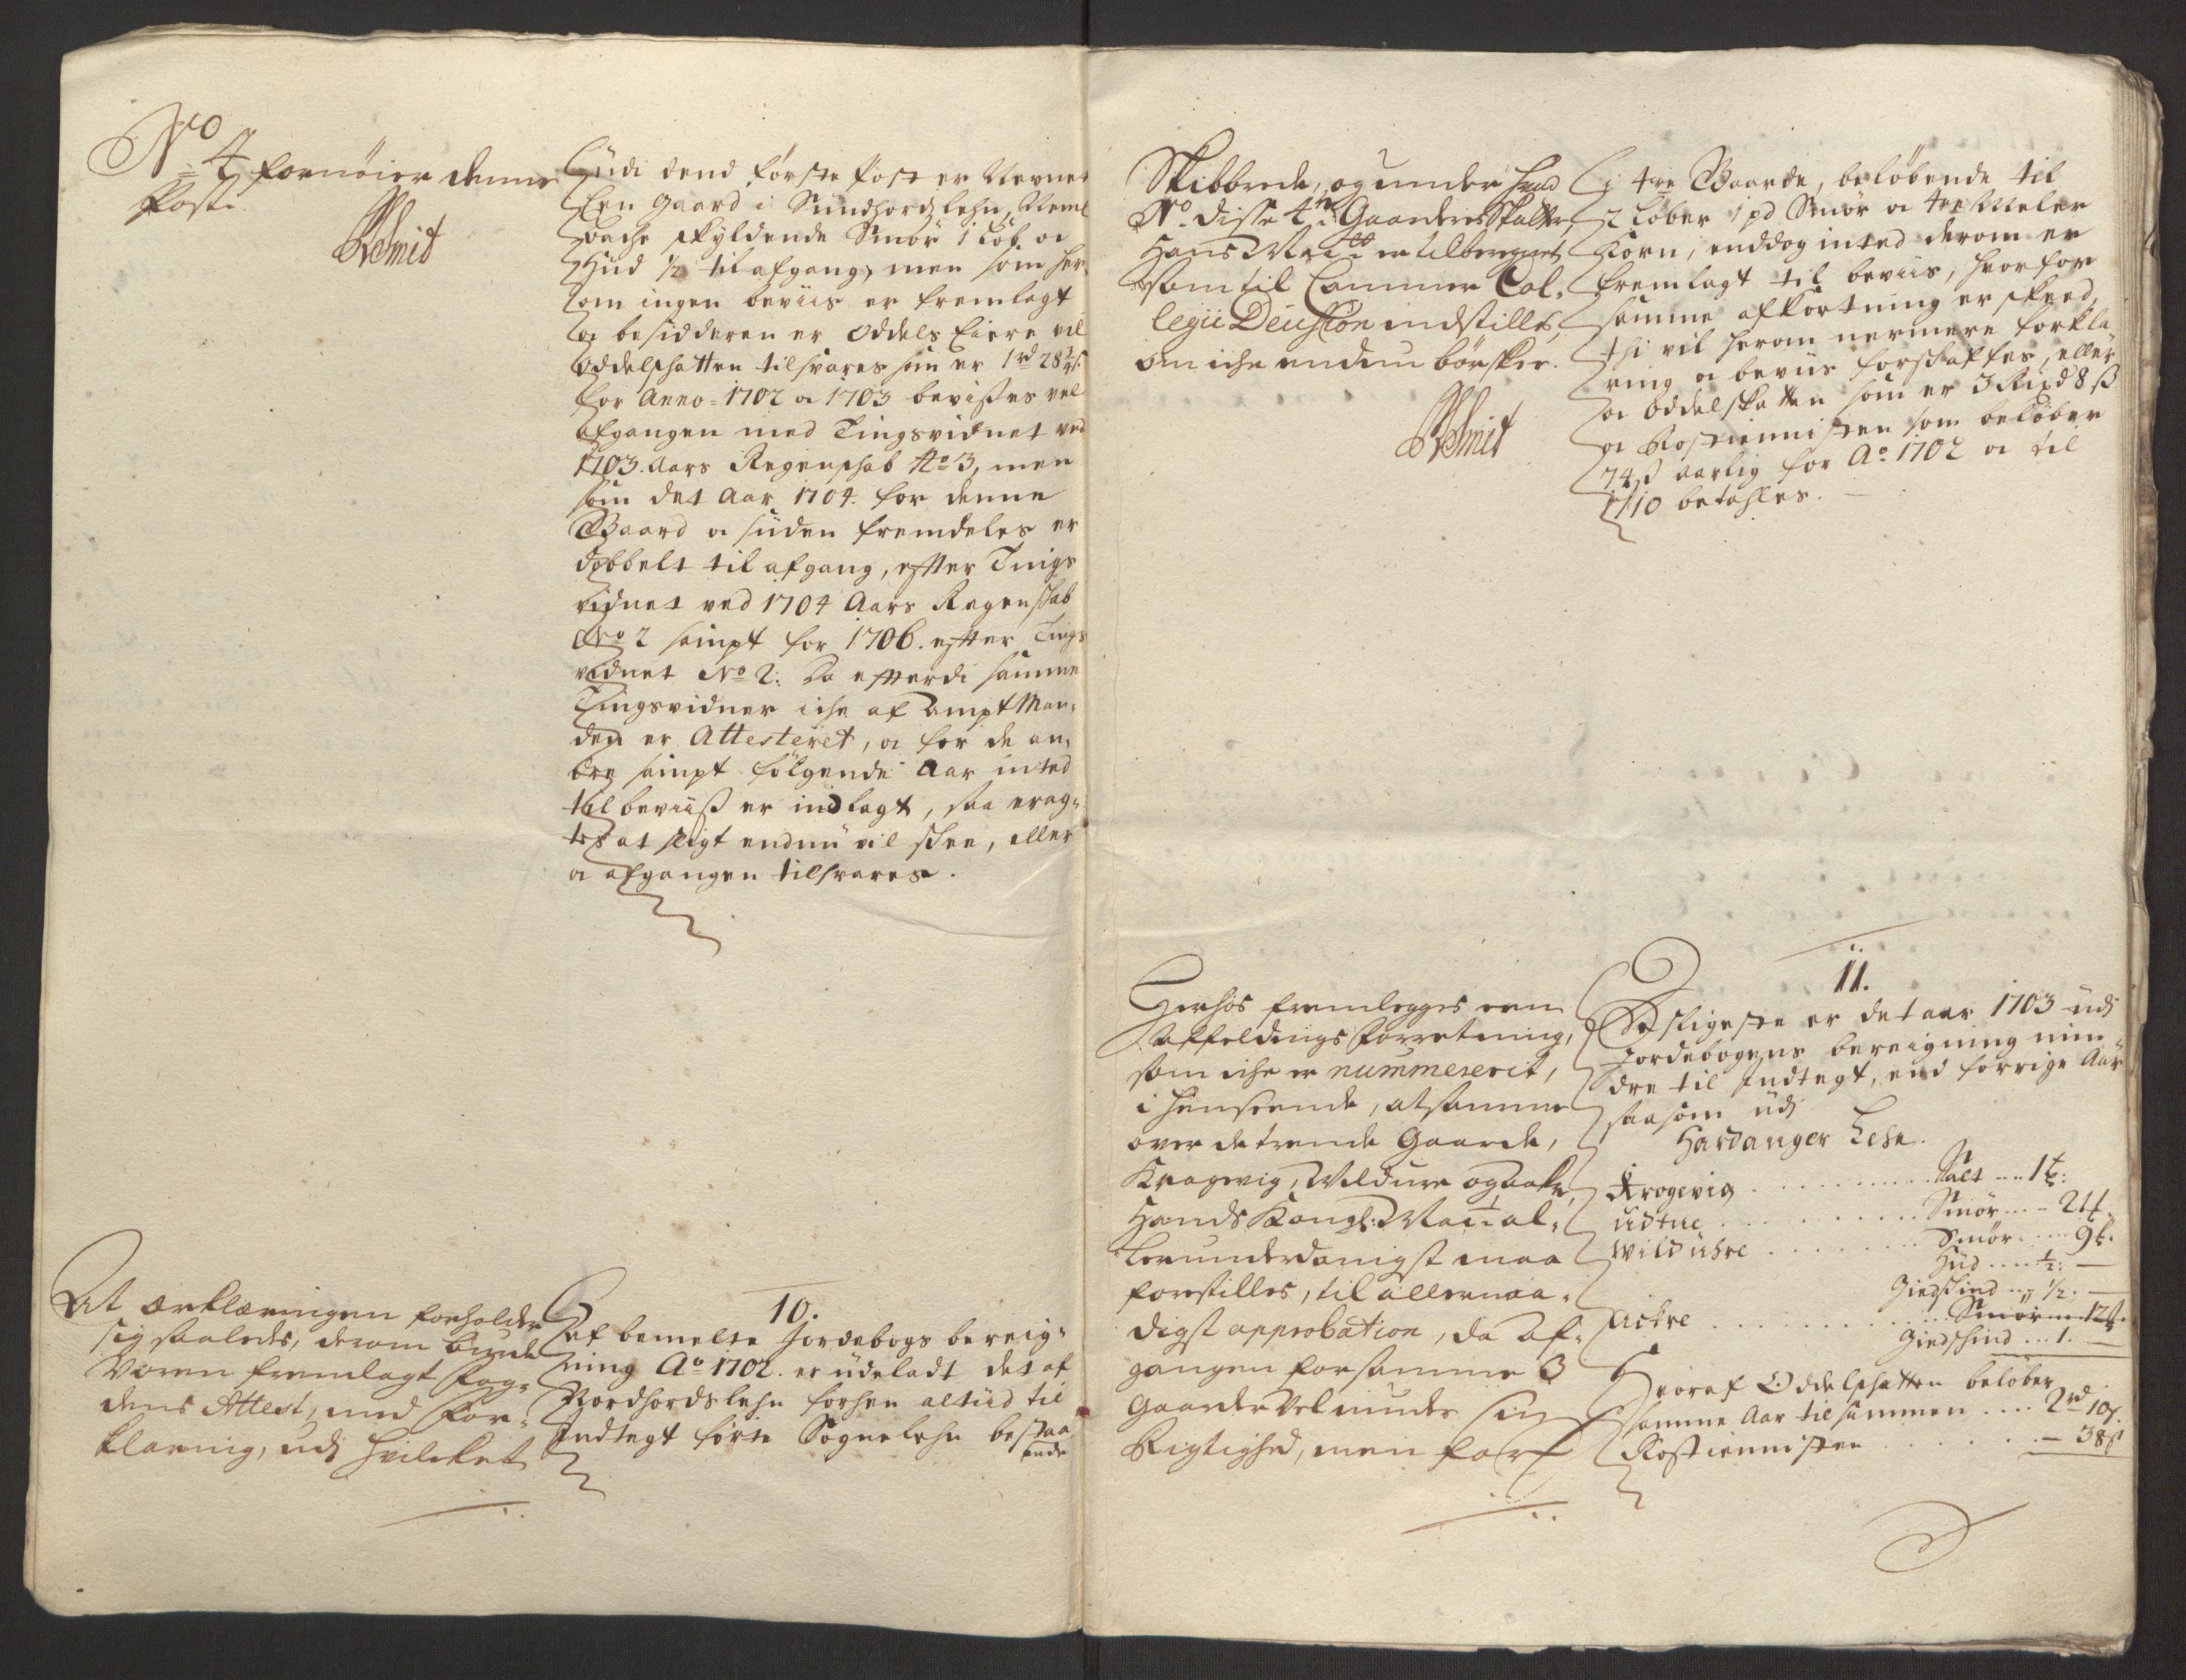 No 4 fornøier denne
Post.
RSmit
Udi dend første Post er Nefnet
Een Gaard i Sundhordlehn, Neml
Bache skyldende Smør 1 Løb. oc
Hud 1/2 til afgang, men som her,
om ingen beviis er fremlagt
oc besidderen er Oddels Eiere vil
Oddelschatten tilsvares som er 1rd 28
for Anno 1702 oc 1703 bevises vel
afgangen med Tingsvidnet ved
1703. Aars Regenschab No 3, men
som det Aar 1704. for denne
Gaard oc siiden fremdeles er
dobbelt til afgang, efter Tings
vidnet ved 1704 Aars Regenschab
No 2 sampt for 1706. efter Tings
vidnet No 2: Da efterdi samme
Tingsvidner iche af AmptMan,
den er Attesteret, oc for de an,
dre sampt følgende Aar inted
til beviiß er indlagt, saa erag,
tes at sligt endnu vil schee, eller
oc afgangen tilsvares.
At Erklæringen forholder
sig saaledes, derom burde
Voren fremlagt Fog,
dens Attest, med For,
klaring, udj hvilcket
10.
af bemelte Jordebogs bereig,
ning Ao 1702. er udeladt det af
Nordhordslehn forhen altiid til
Indtegt førte Sognelehn bestaa
ende
Skibbrede, og under hvad
No. disse 4re Gaarders Skatter,
Hans Maytt er Uberegnet
som til Cammer Col,
legii Decision indstilles,
om iche endnu bør skee.
RSmit
i 4re Gaarde, beløbende til
2 Løber 1 pd Smør oc 4re Meler
Korn, enddog inted derom er
fremlagt til beviis, hvorfor
samme afkortning er skeed,
thi vil herom nermere forkla
ring oc beviis forschaffes, eller
oc Oddelskatten som er 3 Rixd 8 ß
oc Rostiennisten som beløber
74ß aarlig for Ao 1702 oc til
1710 betahles.
Herhos fremlegges een
Affeldings Forretning,
som iche er nummererit,
i henseende, at samme
over de trende Gaarde,
Kragevig, Wildure og Aakre,
Hands Kongl: May: al,
lerunderdanigst maa
forestilles, til allernaa,
digst approbation, da af,
gangen for samme 3
Gaarder Vel under sig
Rigtighed, men for
11.
Desligeste er det aar 1703 udj
Jordebogens bereigning min
dre til Indtegt, end forrige Aar
saasom udj
Hardanger Lehn.
Krogevig . . . . . . . . Salt . . . 1 t:
Udtue . . . . . . . . Smør . . . . 21
Wilduhre . . . . . . . . Smør . . . . 9
Hud . . . . 1/2: —
Giedskind . . . 1/2. —
Ackre . . . . . . . . Smør . . . 12
Giedskind . . . 1. —
Hvoraf Oddelschatten beløber
samme Aar tilsammen . . . . 2rd 10ß.
Rostiennisten . . . . . . — 38ß